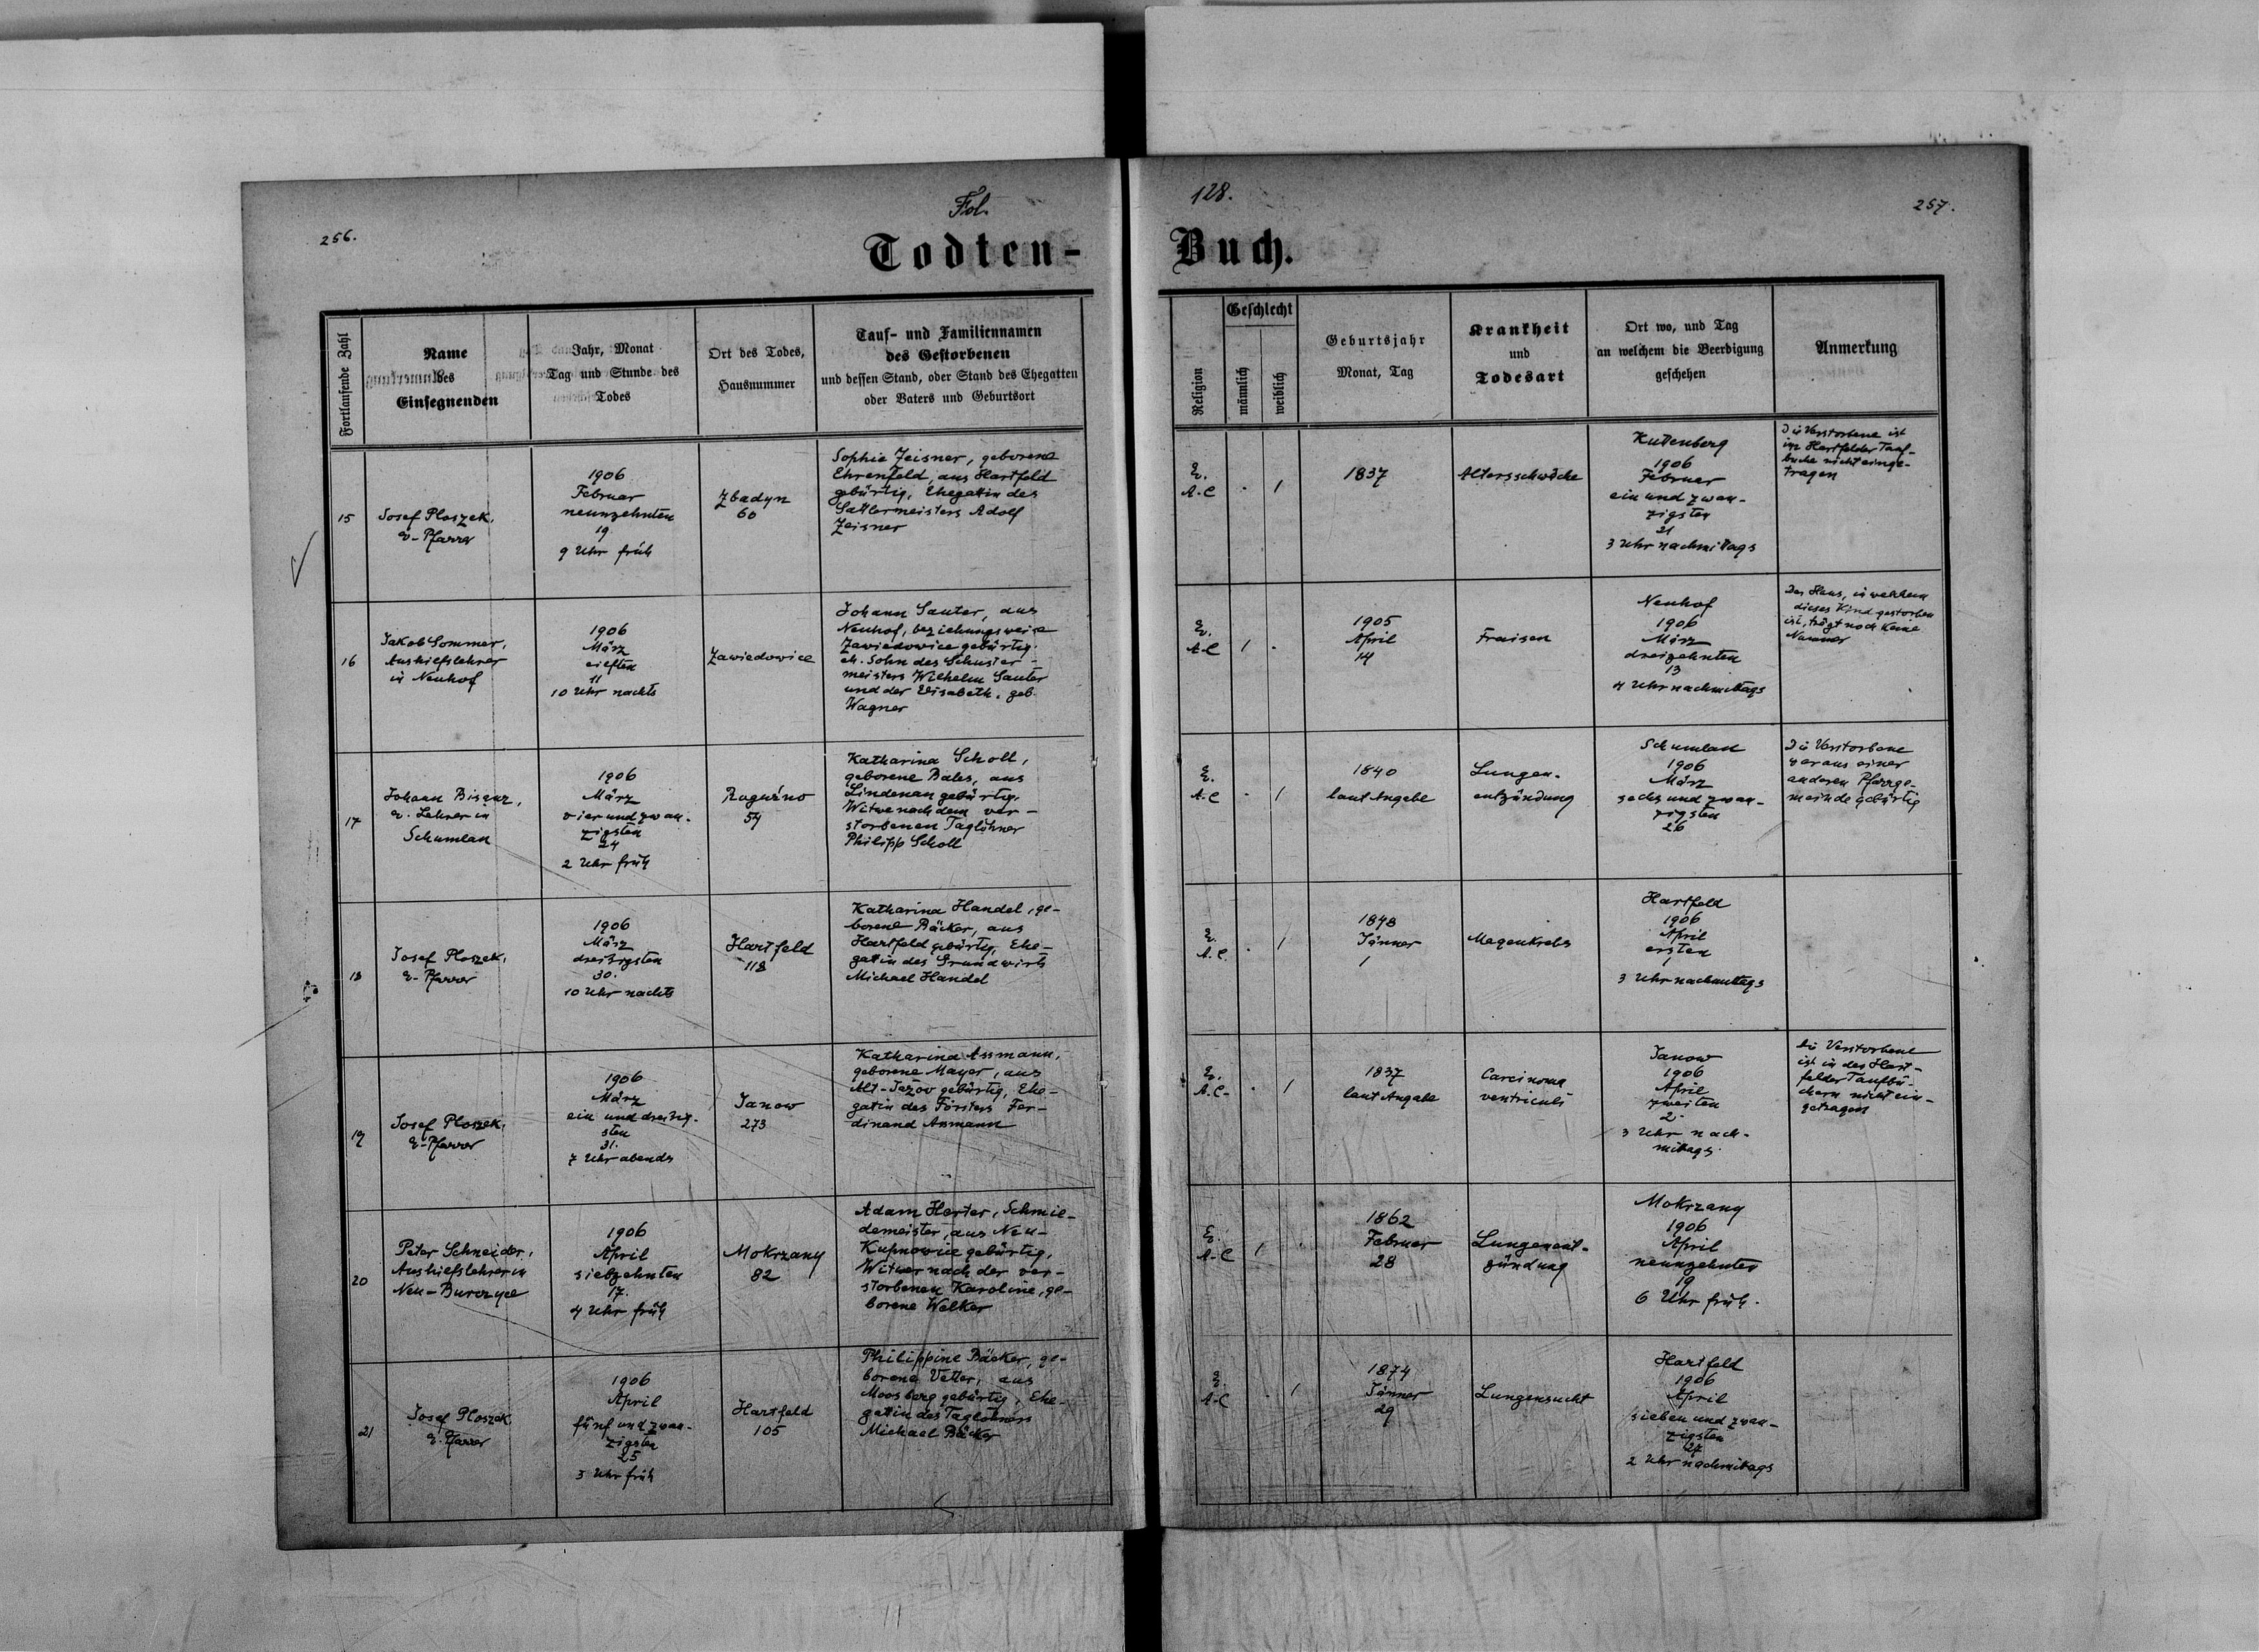 256.
Fol.
128.
257.
Todten-
Buch.
Fortlaufende Zahl
Name
des
Einsegnenden
Jahr, Monat
Tag und Stunde des
Todes
Ort des Todes,
Hausnummer
Tauf- und Familiennamen
des Gestorbenen
und dessen Stand, oder Stand des Ehegatten
oder Vaters und Geburtsort
Religion
Geschlecht
männlich
weiblich
Geburtsjahr
Monat, Tag
Krankheit
und
Todesart
Ort wo, und Tag
an welchem die Beerdigung
geschehen
Anmerkung
15
Josef Ploszek,
ev. Pfarrer
1906
Februar
neunzehnten
19
9 Uhr früh
Zbadyn
60
Sophie Zeisner, geborene
Ehrenfeld, aus Hartfeld
gebürtig, Ehegattin des
Sattlermeisters Adolf
Zeisner
Ev.
A.C
.
1
1837
Altersschwäche
Kutenberg
1906
Februar
ein und zwan-
zigsten
21
3 Uhr nachmittags
Die Verstorbene ist
im Hartfelder Tauf-
buche nicht einge-
tragen
16
Jakob Sommer,
Aushilfslehrer
in Neuhof
1906
März
eilften
11
10 Uhr nachts
Zawiedowice
Johann Sauter, aus
Neuhof, beziehungsweise
Zawiedowice gebürtig.
eh. Sohn des Schuster-
meisters Wilhelm Sauter
und der Elisabeth, geb.
Wagner
Ev.
A.C
1
.
1905
April
14
Fraisen
Neuhof
1906
März
dreizehnten
13
4 Uhr nachmittags
Das Haus, in welchem
dieses Kind gestorben
ist, trägt noch keine
Nummer
17
Johann Bisanz,
ev. Lehrer in
Schumlau
1906
März
vier und zwan-
zigsten
24
2 Uhr früh
Roguźno
54
Katharina Scholl,
geborene Bales, aus
Lindenau gebürtig,
Witwe nach dem ver-
storbenen Taglöhner
Philipp Scholl
Ev.
A.C
.
1
1840
laut Angabe
Lungen-
entzündung
Schumlau
1906
März
sechs und zwan-
zigsten
26
Die Verstorbene
war aus einer
anderen Pfarrge-
meinde gebürtig
18
Josef Ploszek,
ev. Pfarrer
1906
März
dreißigsten
30.
10 Uhr nachts
Hartfeld
118
Katharina Handel, ge-
borene Bäcker, aus
Hartfeld gebürtig, Ehe-
gatin des Grundwirts
Michael Handel
Ev.
A.C.
.
1
1848
Jänner
1
Magenkrebs
Hartfeld
1906
April
ersten
1
3 Uhr nachmittags
19
Josef Ploszek,
ev. Pfarrer
1906
März
ein und dreißig-
sten
31.
7 Uhr abends
Janow
273
Katharina Assmann,
geborene Mayer, aus
Alt-Jażov gebürtig, Ehe-
gatin des Försters Fer-
dinand Assmann
Ev.
A.C.
.
1
1837
laut Angabe
Carcinoma
ventriculi
Janow
1906
April
zweiten
2.
3 Uhr nach-
mittags
Die Verstorbene
ist in den Hart-
felder Taufbü-
chern nicht ein-
getragen
20
Peter Schneider,
Aushilfslehrer in
Neu-Burczyce
1906
April
siebzehnten
17.
4 Uhr früh
Mokrzany
82
Adam Harter, Schmie-
demeister, aus Neu-
Kupnowice gebürtig,
Witwer nach der ver-
storbenen Karoline, ge-
borene Welker
Ev.
A.C
1
.
1862
Februar
28
Lungenent-
zündung
Mokrzany
1906
April
neunzehnten
19
6 Uhr früh.
21
Josef Ploszek
ev. Pfarrer
1906
April
fünf und zwan-
zigsten
25
3 Uhr früh
Hartfeld
105
Philippine Bäcker, ge-
borene Vetter, aus
Moosberg gebürtig, Ehe-
gattin des Taglöhners
Michael Bäcker
Ev.
A.C
.
1
1874
Jänner
29
Lungensucht
Hartfeld
1906
April
sieben und zwan-
zigsten
27
2 Uhr nachmittags